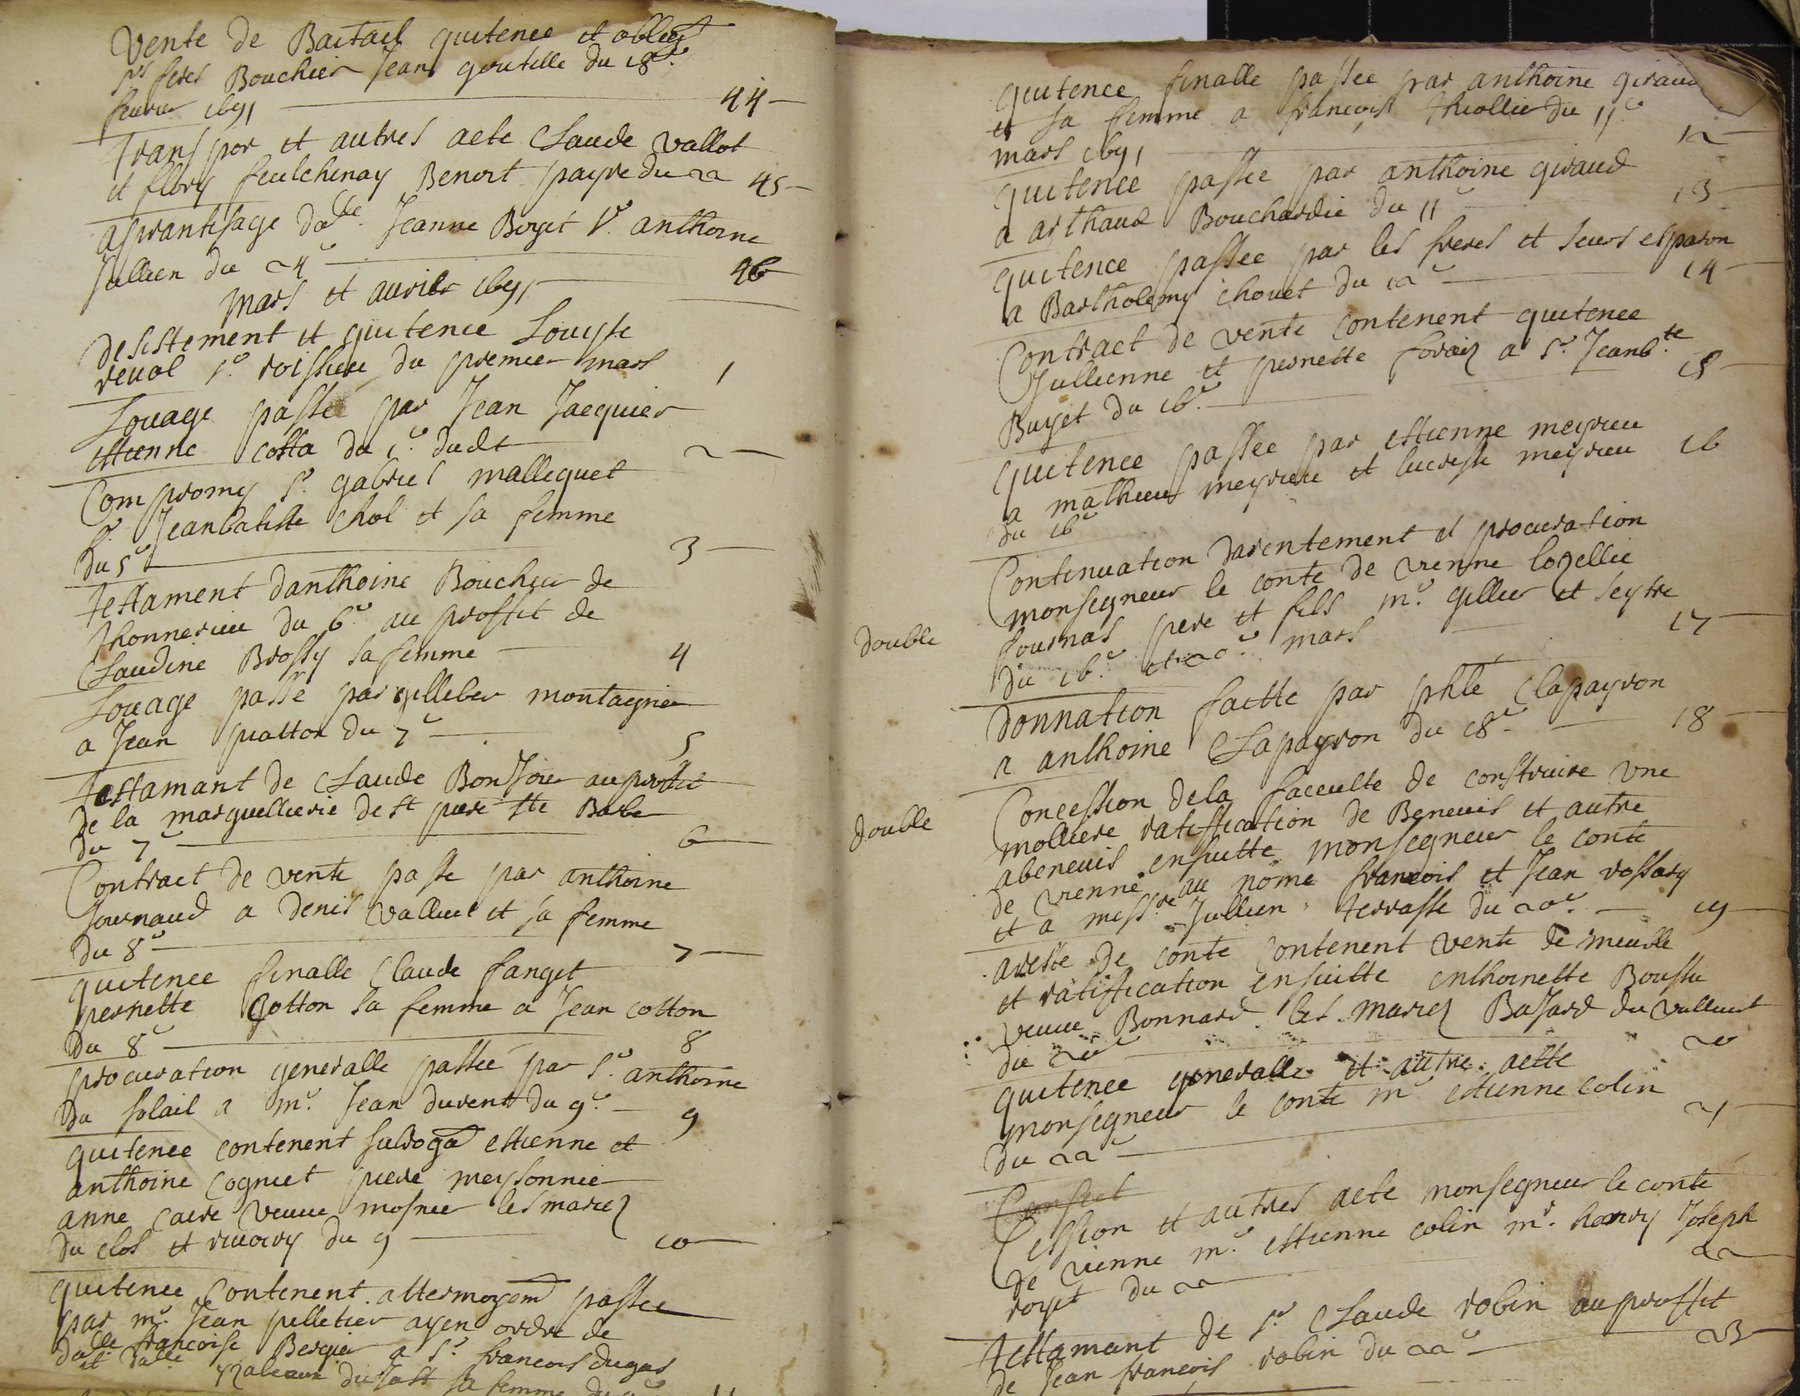 Vente de Bastail quitence et obligt
srs feres Bouchier Jean goutelle du 18e
feuvrier 1691 44
transpor et autres acte Claude vallot
et flory feulchenay Benoit payre du 22 45
aprantisage dalle Jeanne Berget Ve anthoine
Jullien du 24e 46
mars et auvril 1691
desistement et quitence Louyse
reuol sr roissiere du premier mars 1
Louage passé par Jean Jacquier
estienne cotta du 1er dudt 2
Compromy sr gabriel mallequet
sr Jeanbatiste Chol et sa femme
du 5e 3
testament danthoine Boucher de
Thonnerieu du 6e au proffit de
Claudine Brossy sa femme 4
Louage passé par gilleber montagnier
a Jean du 7e 5
testamant de Claude Bonjour au proffit
de la marguellierie de st piere ste Barbe
du 7e 6
Contract de vente passe par anthoine
Journaud a Denis valluet et sa femme
du 8e 7
quitence finalle Claude fanget
pernette Cotton sa femme a Jean cotton
du 8e 8
procuration generalle passée par sr anthoine
du solail a mr Jean durent du 9e 9
quitence contenent subroga estienne et
anthoine Cognet piere meyssonnier
anne Caire veuve mosnier les mariez
du clos et rivoiry du 9 10
quitence contenent attermoyemt passee
par mr Jean pelletier ayen ordre de
dalle francoise Bergier a sr francois dugas
et dalle du Jast sa femme du 9e 11
quitence finalle passee par anthoine giraud
et sa femme a francois thiollier du 11e
mars 1691 12
quitence passee par anthoine giraud
a arthaud Bouchardie du 11 13
quitence passée par les freres et seurs esparon
a Bartholemy chouet du 12e 14
Contract de vente contenent quitence
Jullienne et pernette forair a sr Jeanbte
Buyet du 16e 15
quitence passee par estienne meyrieu
a mathieu meyrieu et lucresse meyrieu 16
du 16e
Continuation darentement et procuration
monseigneur le conte de vienne lozellie
double
fournas pere et fils mr gillier et seytre
du 16e et 20e mars 17
donnation faitte par phle Clapayron
a anthoine Clapayron du 18e 18
Concession de la faceulte de construire une
double
molliere ratiffication de Beneuis et autre
abeneuis ensuitte monseigneur le conte
de vienne au nome francois et Jean rossary
et a messre Jullien terrasse du 20e 19
areste de conte contenent vente de meuble
et ratiffication ensuitte enthoinette Boussu
veuve Bonnard les mariez Bajard du valluet
du 20e 20
quitence generalle et autre acte
monseigneur le conte mr estienne colin
du 22e 21
Cession et autres acte monseigneur le conte
de vienne mr estienne colin mr henry Joseph
royet du 22 22
testamant de sr Claude robin au proffit
de Jean francois robin du 22e 23